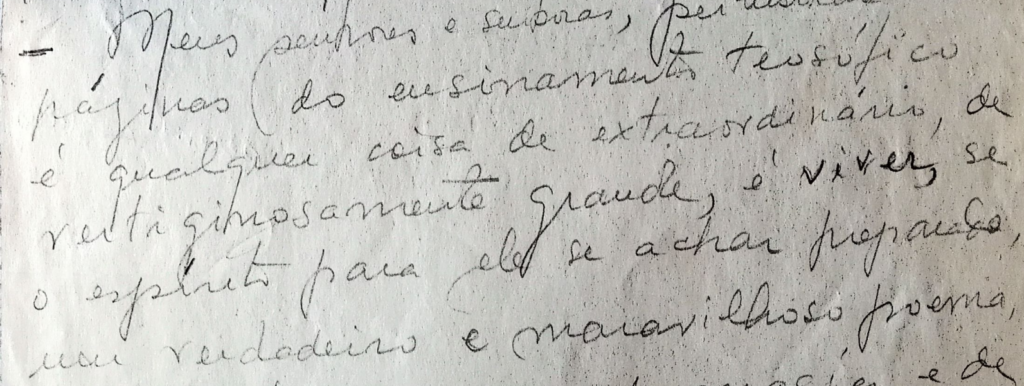 - Meus senhores e senhoras,
páginas do ensinamento teosófico
é qualquer coisa de extraordinário, de
vertiginosamente grande, é viver, se
o espírito para ele se achar preparado,
um verdadeiro e maravilhoso poema,
e de